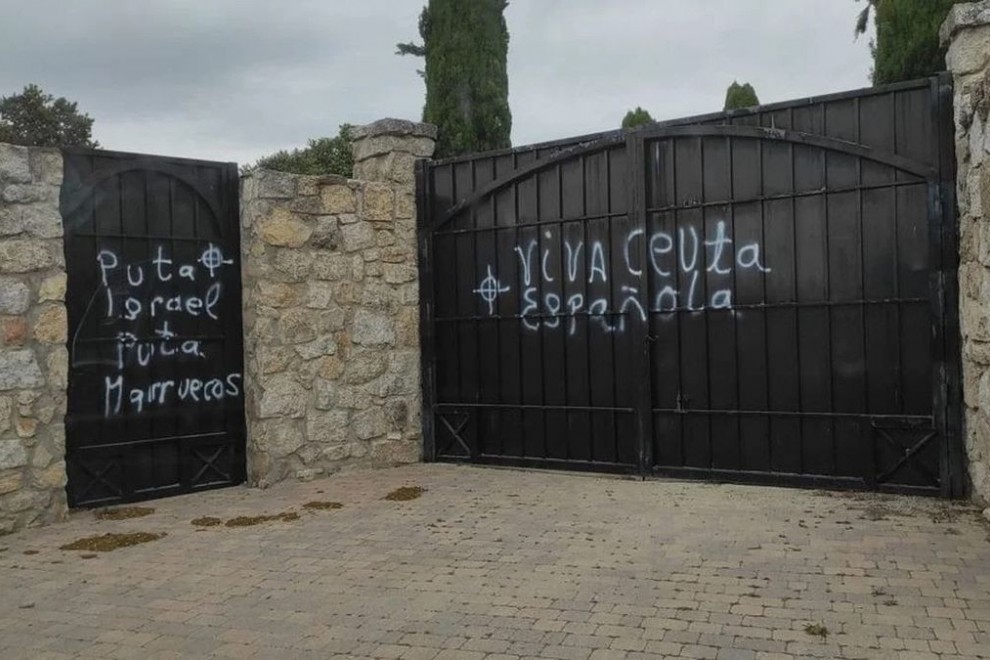 Puta
Israel
Puta
Marruecos
ViVA Ceuta
Española